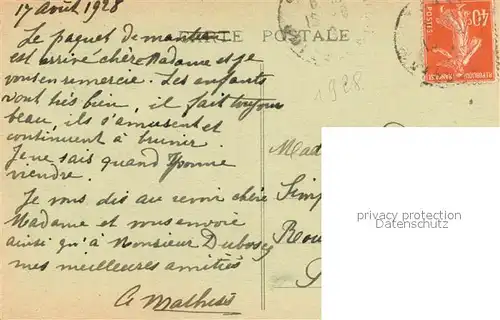 17 août 1928
CARTE POSTALE
Le paquet de
est arrivé chère Madame et je
vous en remercie. Les enfants
vont très bien, il fait toujours
beau, ils s'amusent et
continuent à brunir.
Je ne sais quand Yvonne
viendra.
Je vous dis au revoir chère
Madame et vous envoie
ainsi qu'à Monsieur Duboscq
mes meilleures amitiés
1928
40c
POSTES
Mad
Simp
Rou
privacy protection
Datenschutz